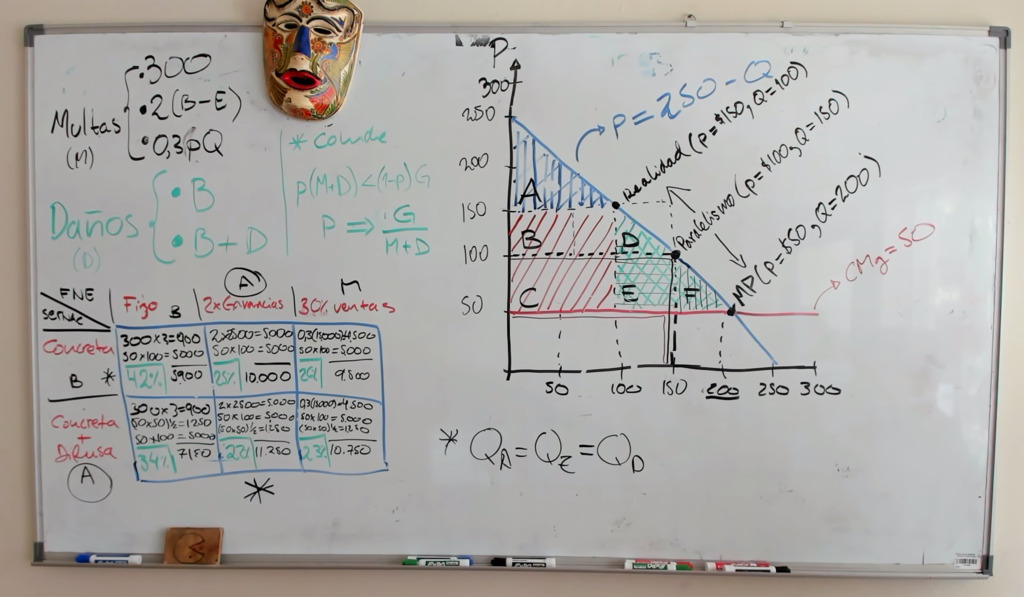 Multas
(M)
• 300
• 2(B-E)
• 0,3pQ
Daños
(D)
• B
• B+D
* Colude
p(M+D)<(1-p)G
P ⇒ G
M+D
FNE
Fijo B
(A)
2xGanancias
M
30% ventas
Concreta
B *
300x3=900
50x100=5000
42% 5900
2x2500=5000
50x100=5000
25% 10.000
0,3(15000)=4500
50x100=5.000
9.500
Concreta
+
Difusa
(A)
300x3=900
(50x50)½=1250
50x100=5000
34% 7150
2x2500=5.000
50x100=5000
(50x50)½=1250
22% 11.250
0,3(15000)=4500
50x100=5.000
(50x50)½=1250
23% 10.750
*
P
300
250
200
150
100
50
50 100 150 200 250 300
P=250-Q
Realidad (P=$150, Q=100)
Paralelismo (P=$100, Q=150)
MP (P=$50, Q=200)
CMg=50
A
B D
C E F
* Q_A=Q_E=Q_D